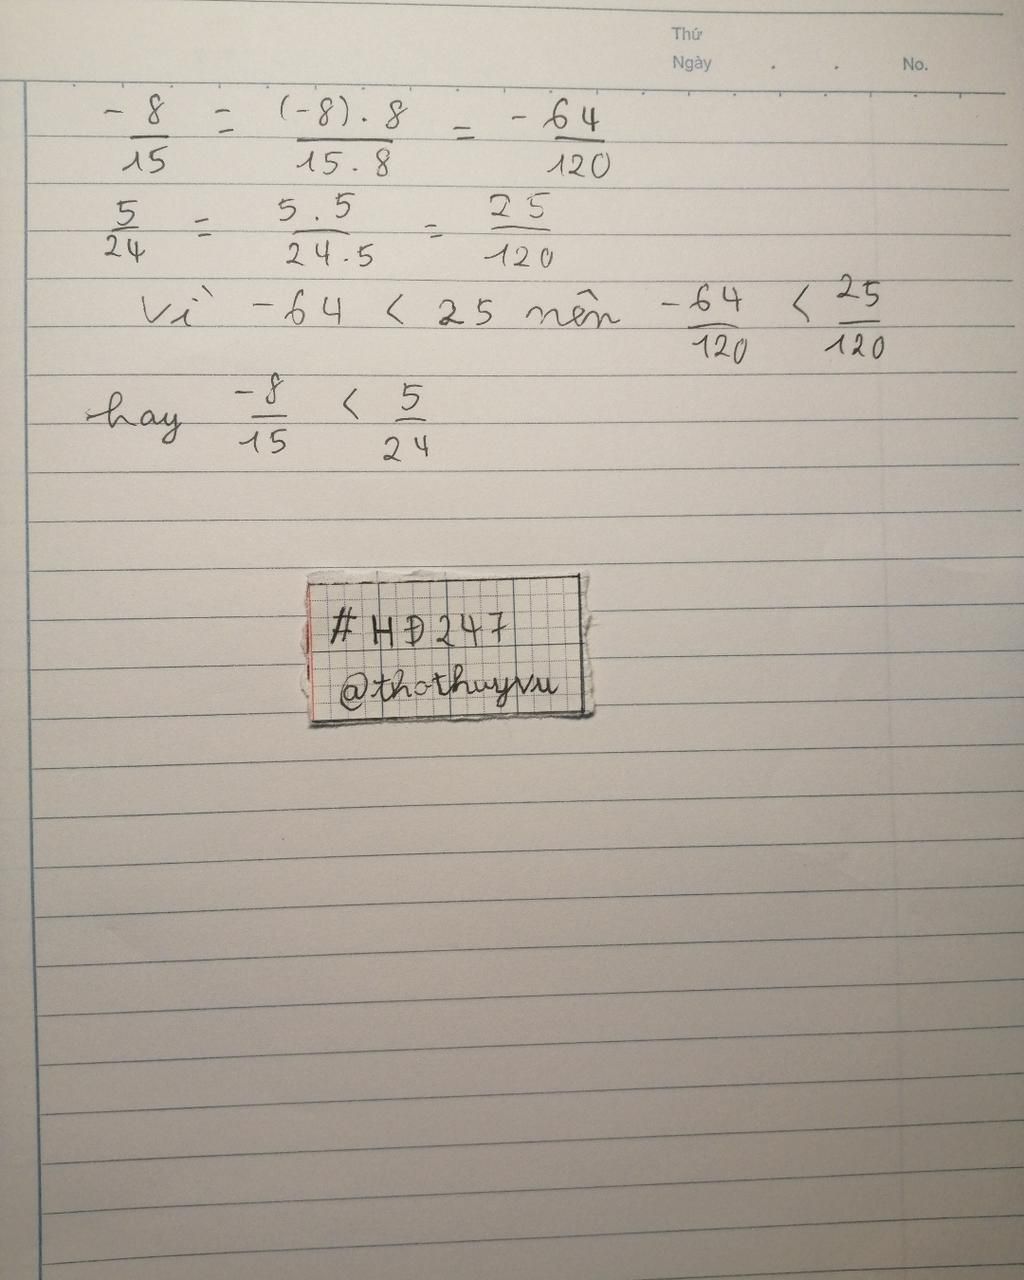 Thứ
Ngày . . No.
-8/15 = (-8).8/15.8 = -64/120
5/24 = 5.5/24.5 = 25/120
Vì -64 < 25 nên -64/120 < 25/120
hay -8/15 < 5/24
#HĐ247
@thothuyvu